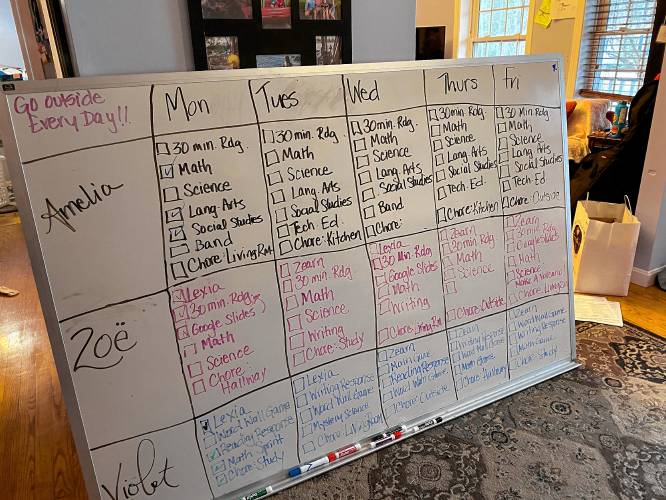 Go outside
Every Day!!
Mon
Tues
Wed
Thurs
Fri
Amelia
30 min. Rdg.
Math
Science
Lang. Arts
Social Studies
Band
Chore: Living Rm
30 min. Rdg.
Math
Science
Lang. Arts
Social Studies
Tech. Ed.
Chore: Kitchen
30 min. Rdg.
Math
Science
Lang. Arts
Social Studies
Band
Chore:
30 min. Rdg.
Math
Science
Lang. Arts
Social Studies
Tech. Ed.
Chore: Kitchen
30 min. Rdg.
Math
Science
Lang. Arts
Social Studies
Tech. Ed
Chore: Outside
Zoë
Lexia
30 min. Rdg
Google Slides
Math
Science
Chore
Hallway
Zearn
30 min. Rdg.
Math
Science
Writing
Chore: Study
Lexia
30 Min Rdg.
Google Slides
Math
Writing
Chore: Living Rm
Zearn
30 min Rdg.
Math
Science
Chore: Outside
Zearn
30 min Rdg
Google Slides
Math
Science
Chore: Living Rm
Violet
Lexia
Word Wall Game
Reading Response
Math Sprint
Chore: Study
Lexia
Writing Response
Word Wall Game
Mystery Science
Chore: Living Room
Zearn
Math Game
Reading Response
Word Wall Game
Chore: Outside
Zearn
Writing Response
Word Wall Game
Math Game
Chore: Hallway
Zearn
Word Wall Game
Writing Response
Math Game
Chore: Study